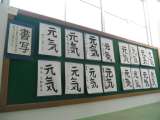 書写
元気
元気
元気
元気
元気
元気
元気
元気
元気
元気
元気
元気
元気
元気